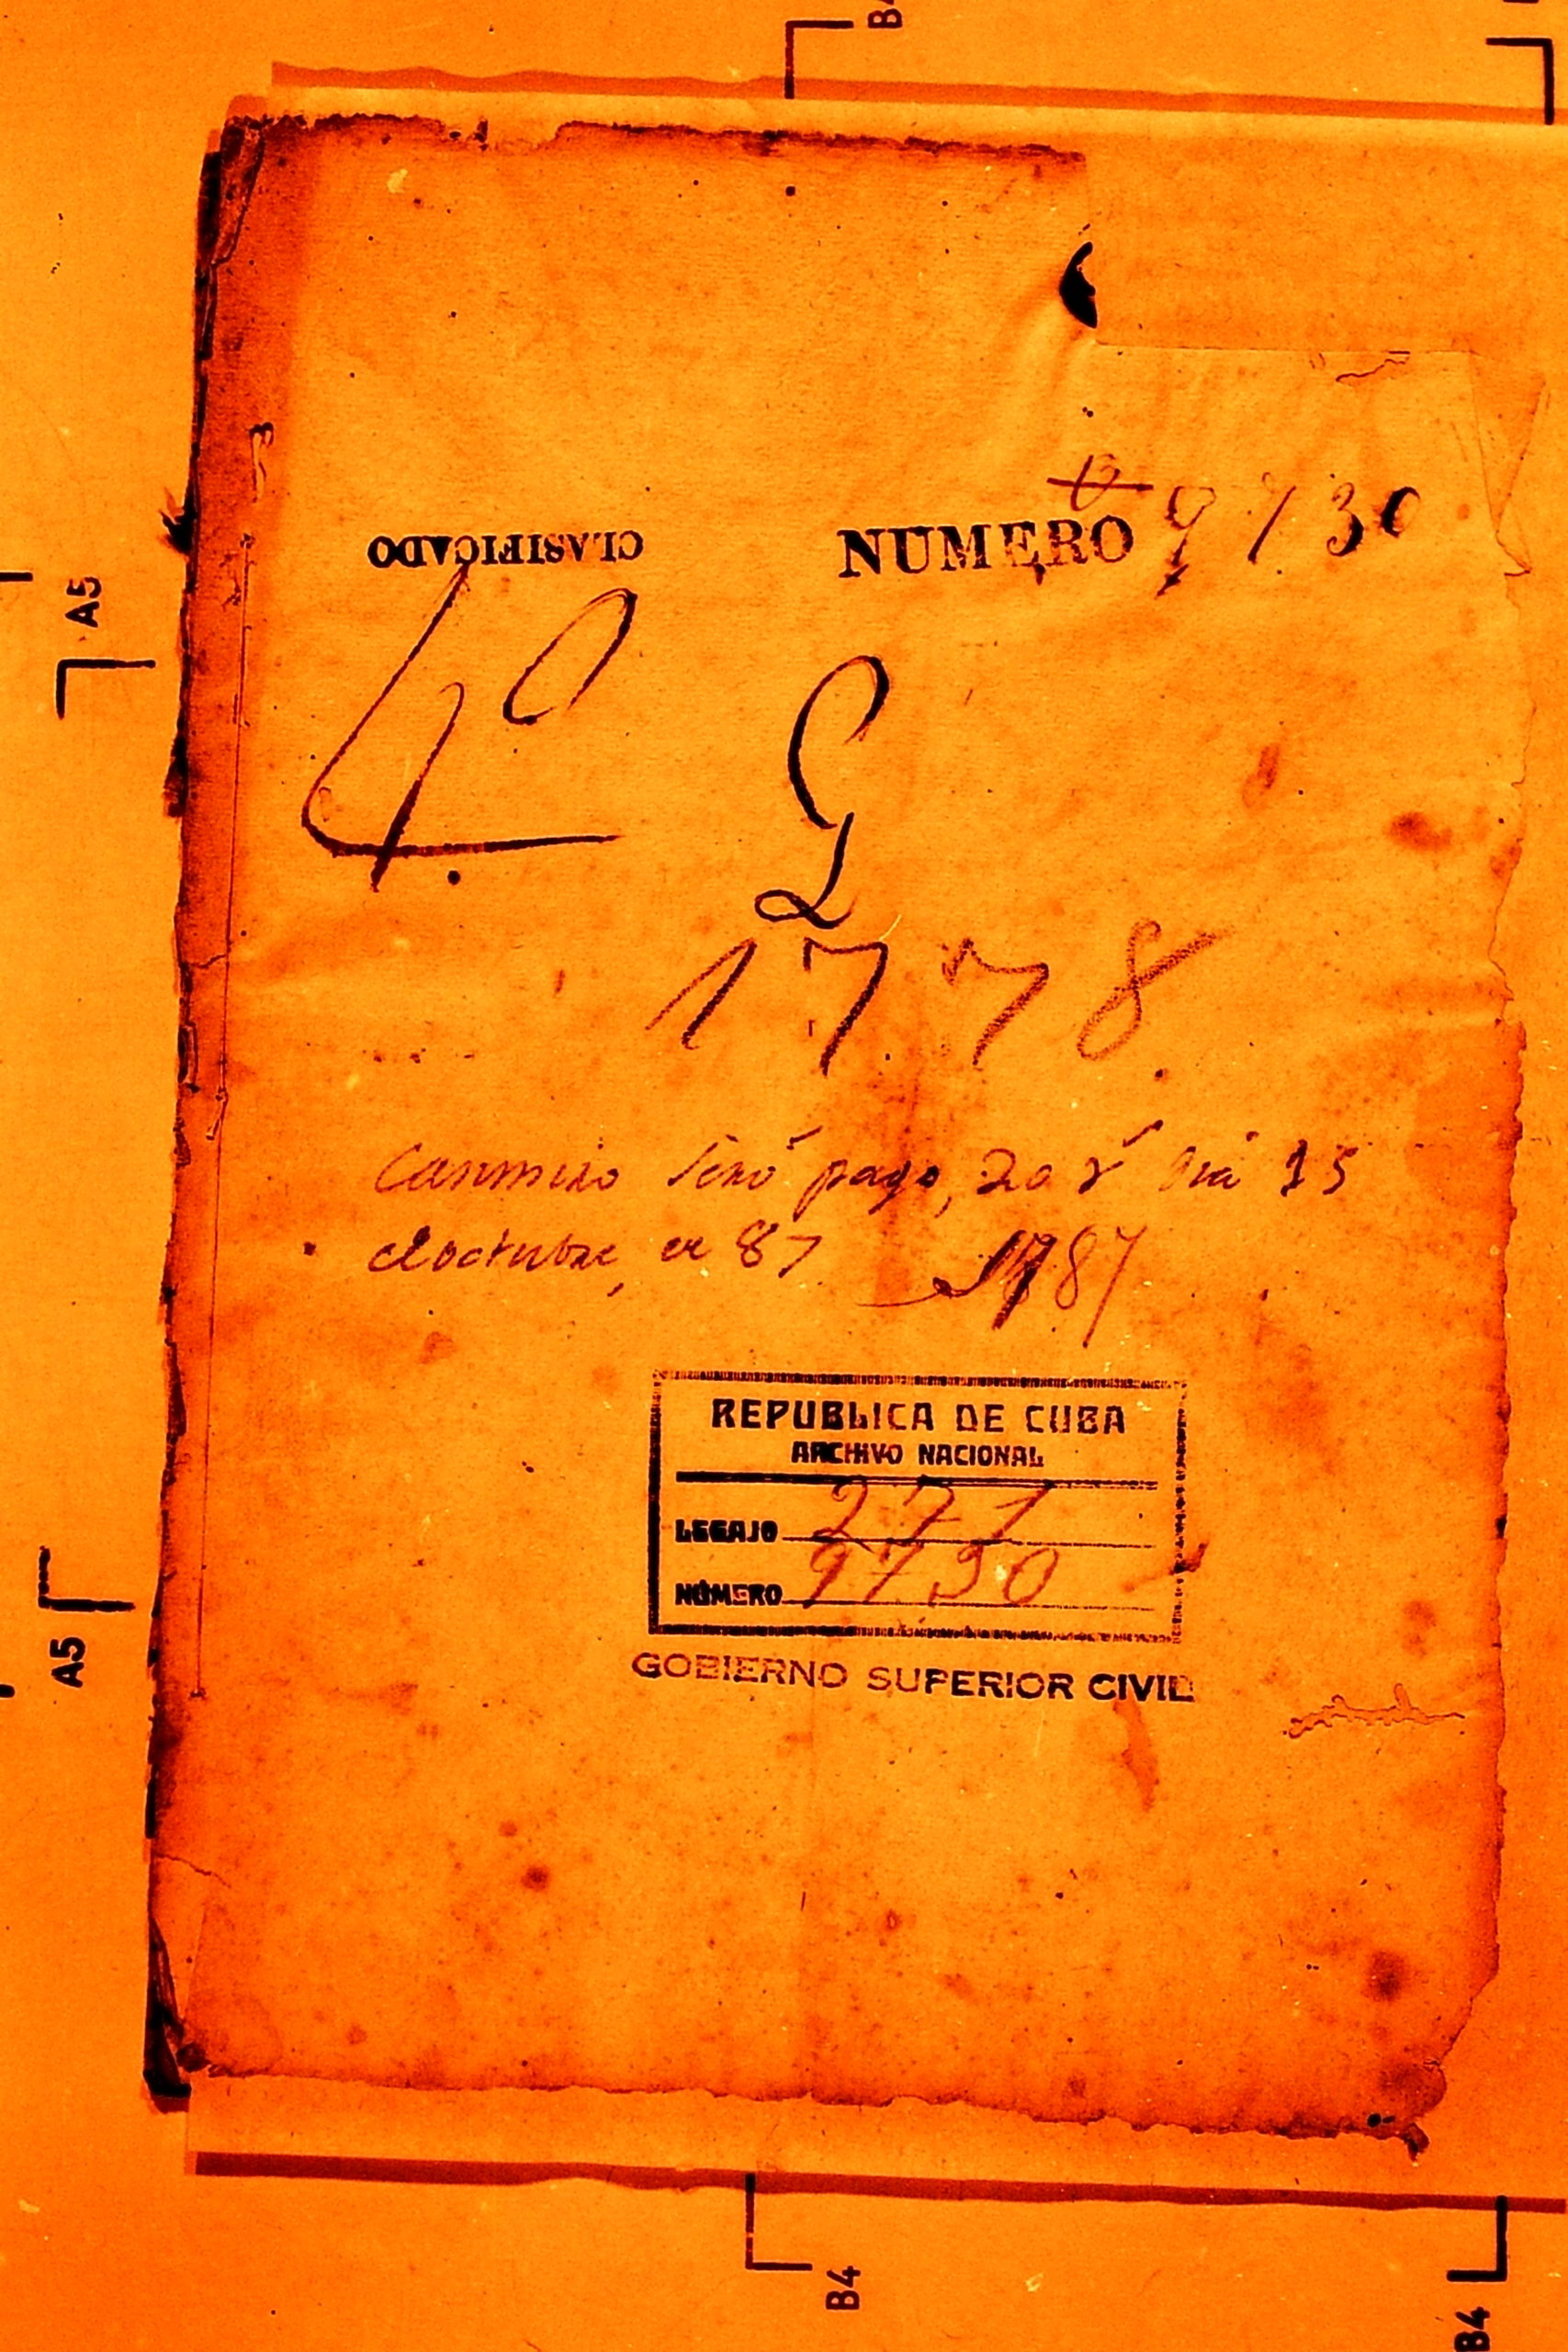 B4
NUMERO 9730
CLASIFICADO
4º
G
1778
A5
Casimiro pago, 20 r dia 15
octubre, de 87 1787
REPUBLICA DE CUBA
ARCHIVO NACIONAL
LEGAJO 271
NÚMERO 9730
GOBIERNO SUPERIOR CIVIL
A5
B4
B4